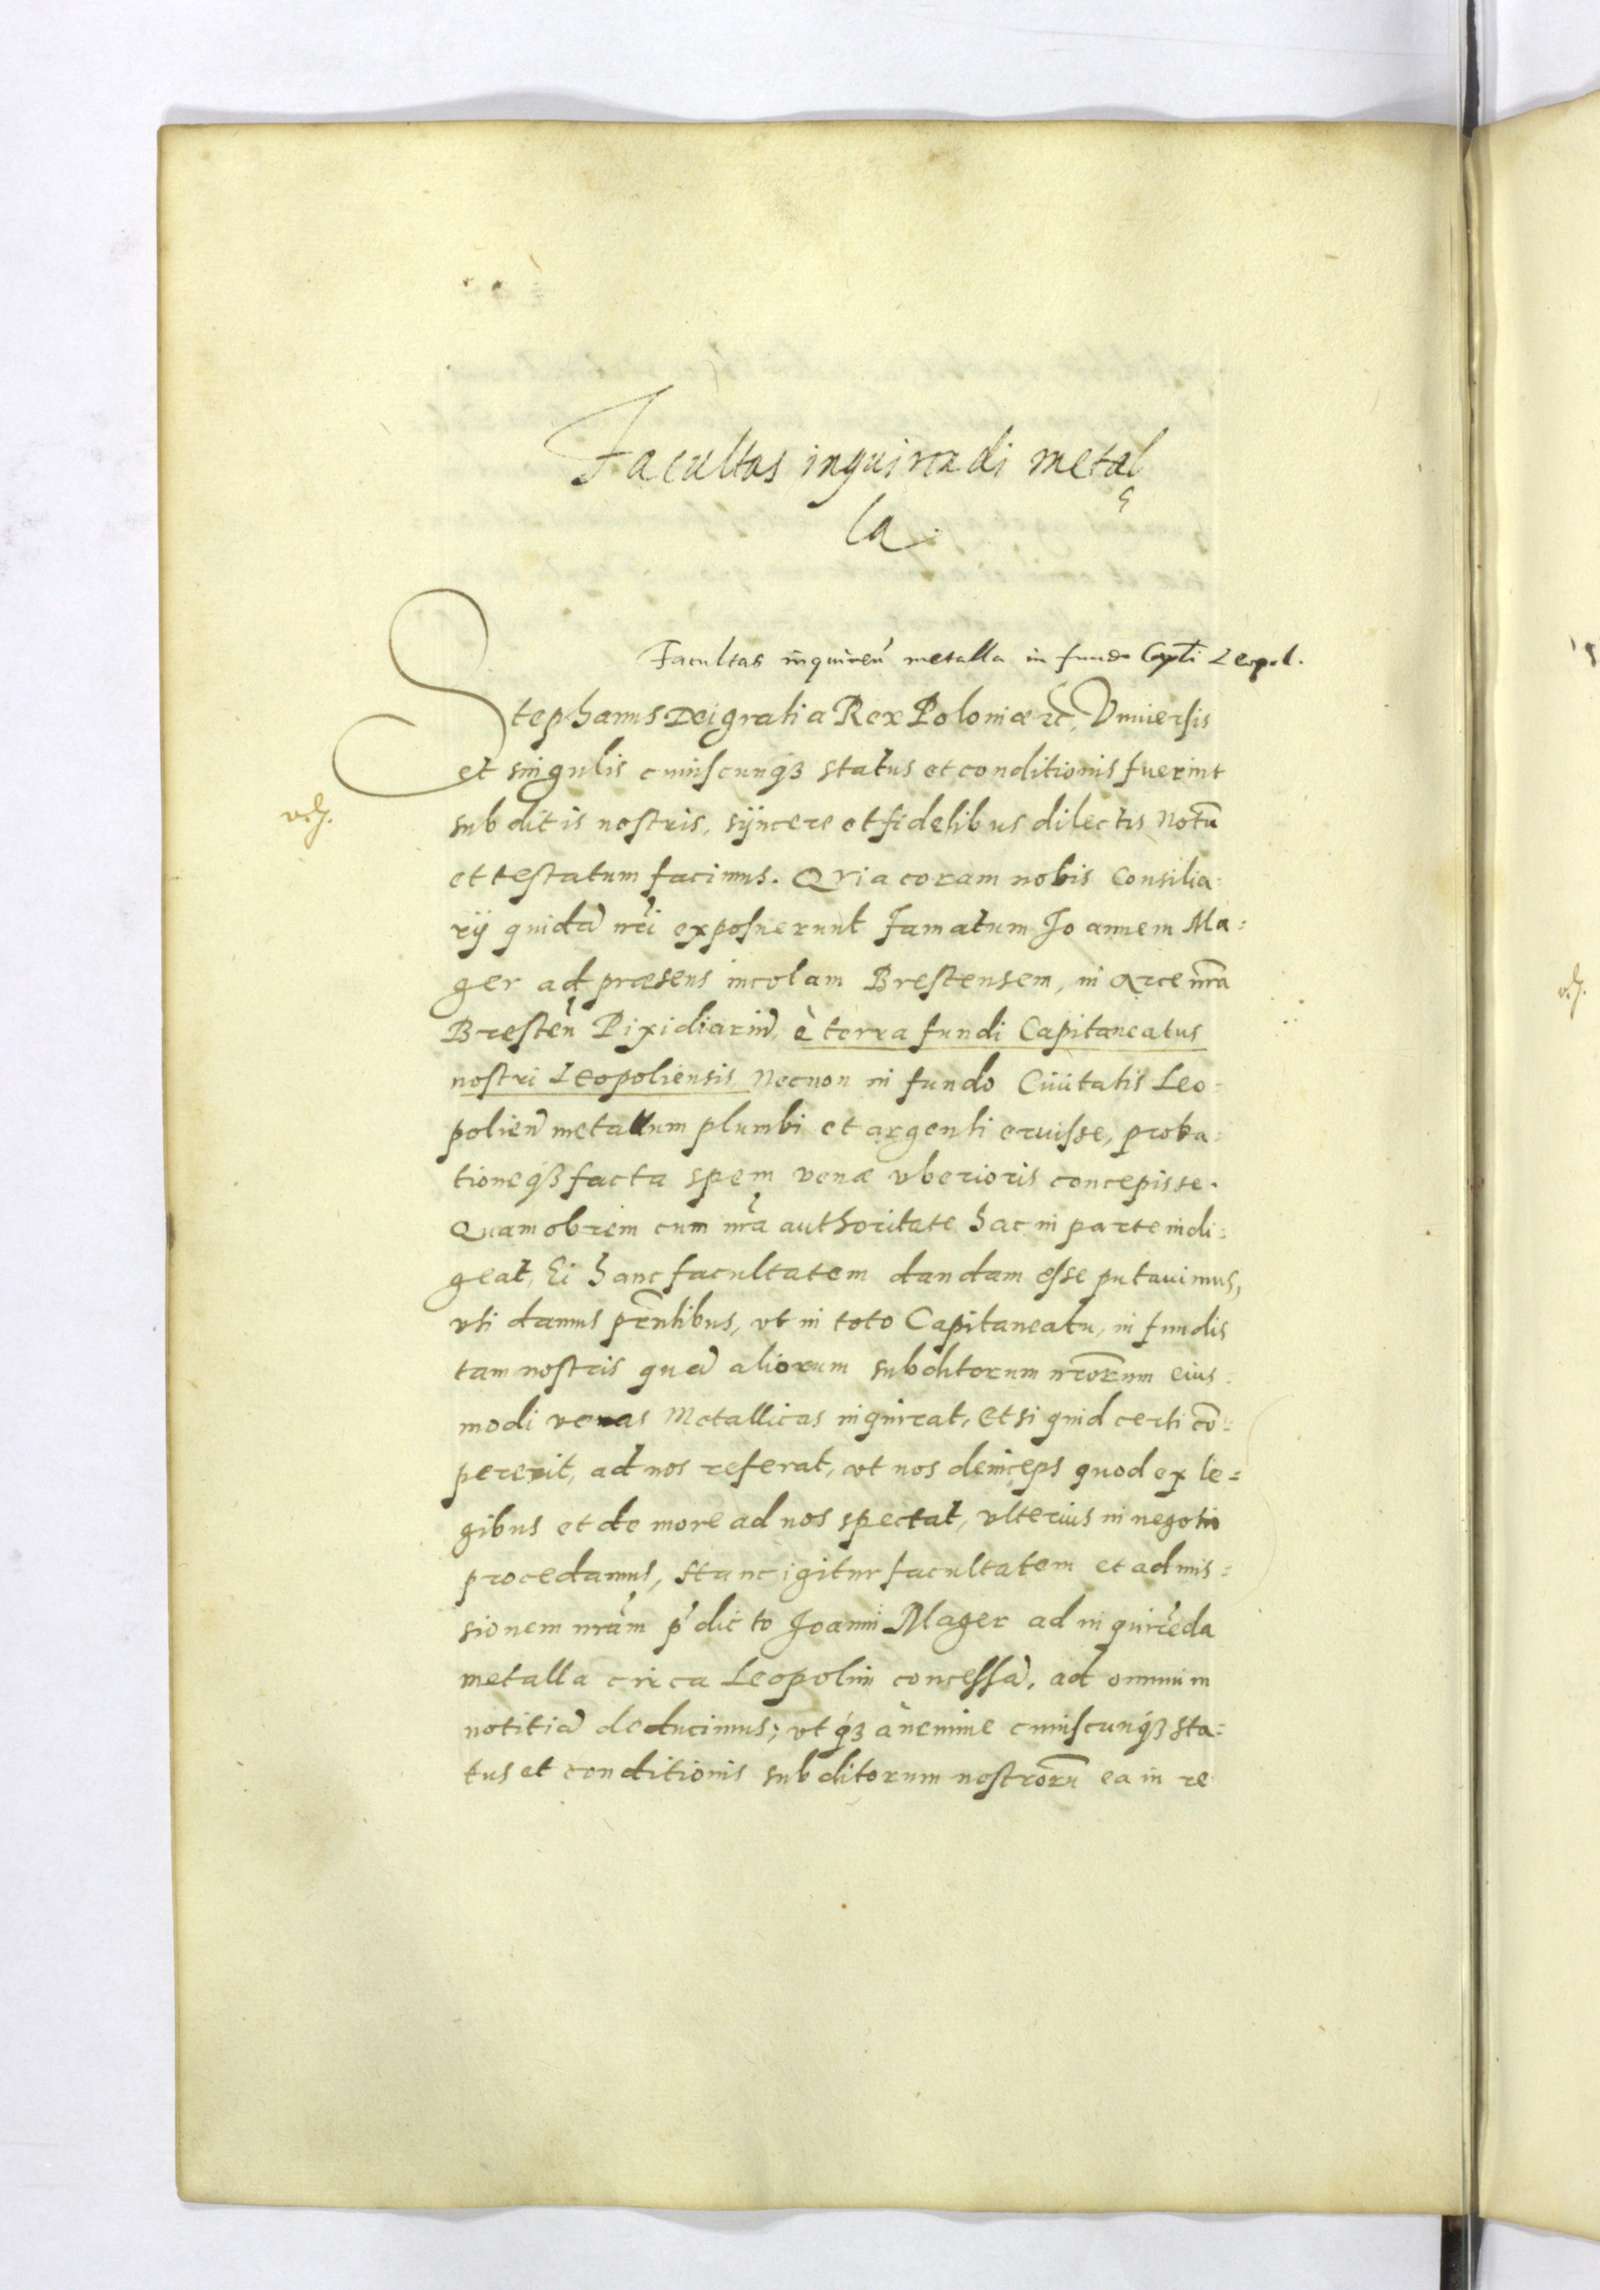 Facultas inquirēdi metal
la.
Facultas inquiren̄ metalla in fundo Capt̄i Leopol.
Stephanus Dei gratia Rex Poloniæ etc̄. Vniuersis
et singulis cuiuscunq3 status et conditionis fuerint
subditis nostris, syncere et fidelibus dilectis Notū
et testatum facimus. Qvia coram nobis Consilia=
rij quidā nr̄i exposuerunt Famatum Joannem Ma=
ger ad præsens incolam Brestensem, in Arce nr̄a
Bresten̄ Pixidiariū, è terra fundi Capitaneatus
nostri Leopoliensis Necnon in fundo Ciuitatis Leo=
polien̄ metallum plumbi et argenti eruisse, proba=
tioneq3 facta spem venæ vberioris concepisse.
Quamobrem cum nr̄a authoritate hac in parte indi=
geat, Ei hanc facultatem dandam esse putauimus,
vti damus pr̄ntibus, vt in toto Capitaneatu, in fundis
tam nostris quā aliorum subditorum nr̄orum eius=
modi venas Metallicas inquirat, Et si quid certi cō=
pererit, ad nos referat, vt nos deinceps quod ex le=
gibus et de more ad nos spectat, vlterius in negotio
procedamus, Hanc igitur facultatem et admis=
sionem nr̄am p̄dicto Joanni Mager ad inquirēda
metalla circa Leopolim concessā, ad omnium
notitiā deducimus; vt q3 à nemine cuiuscunq3 sta=
tus et conditionis subditorum nostrorū ea in re